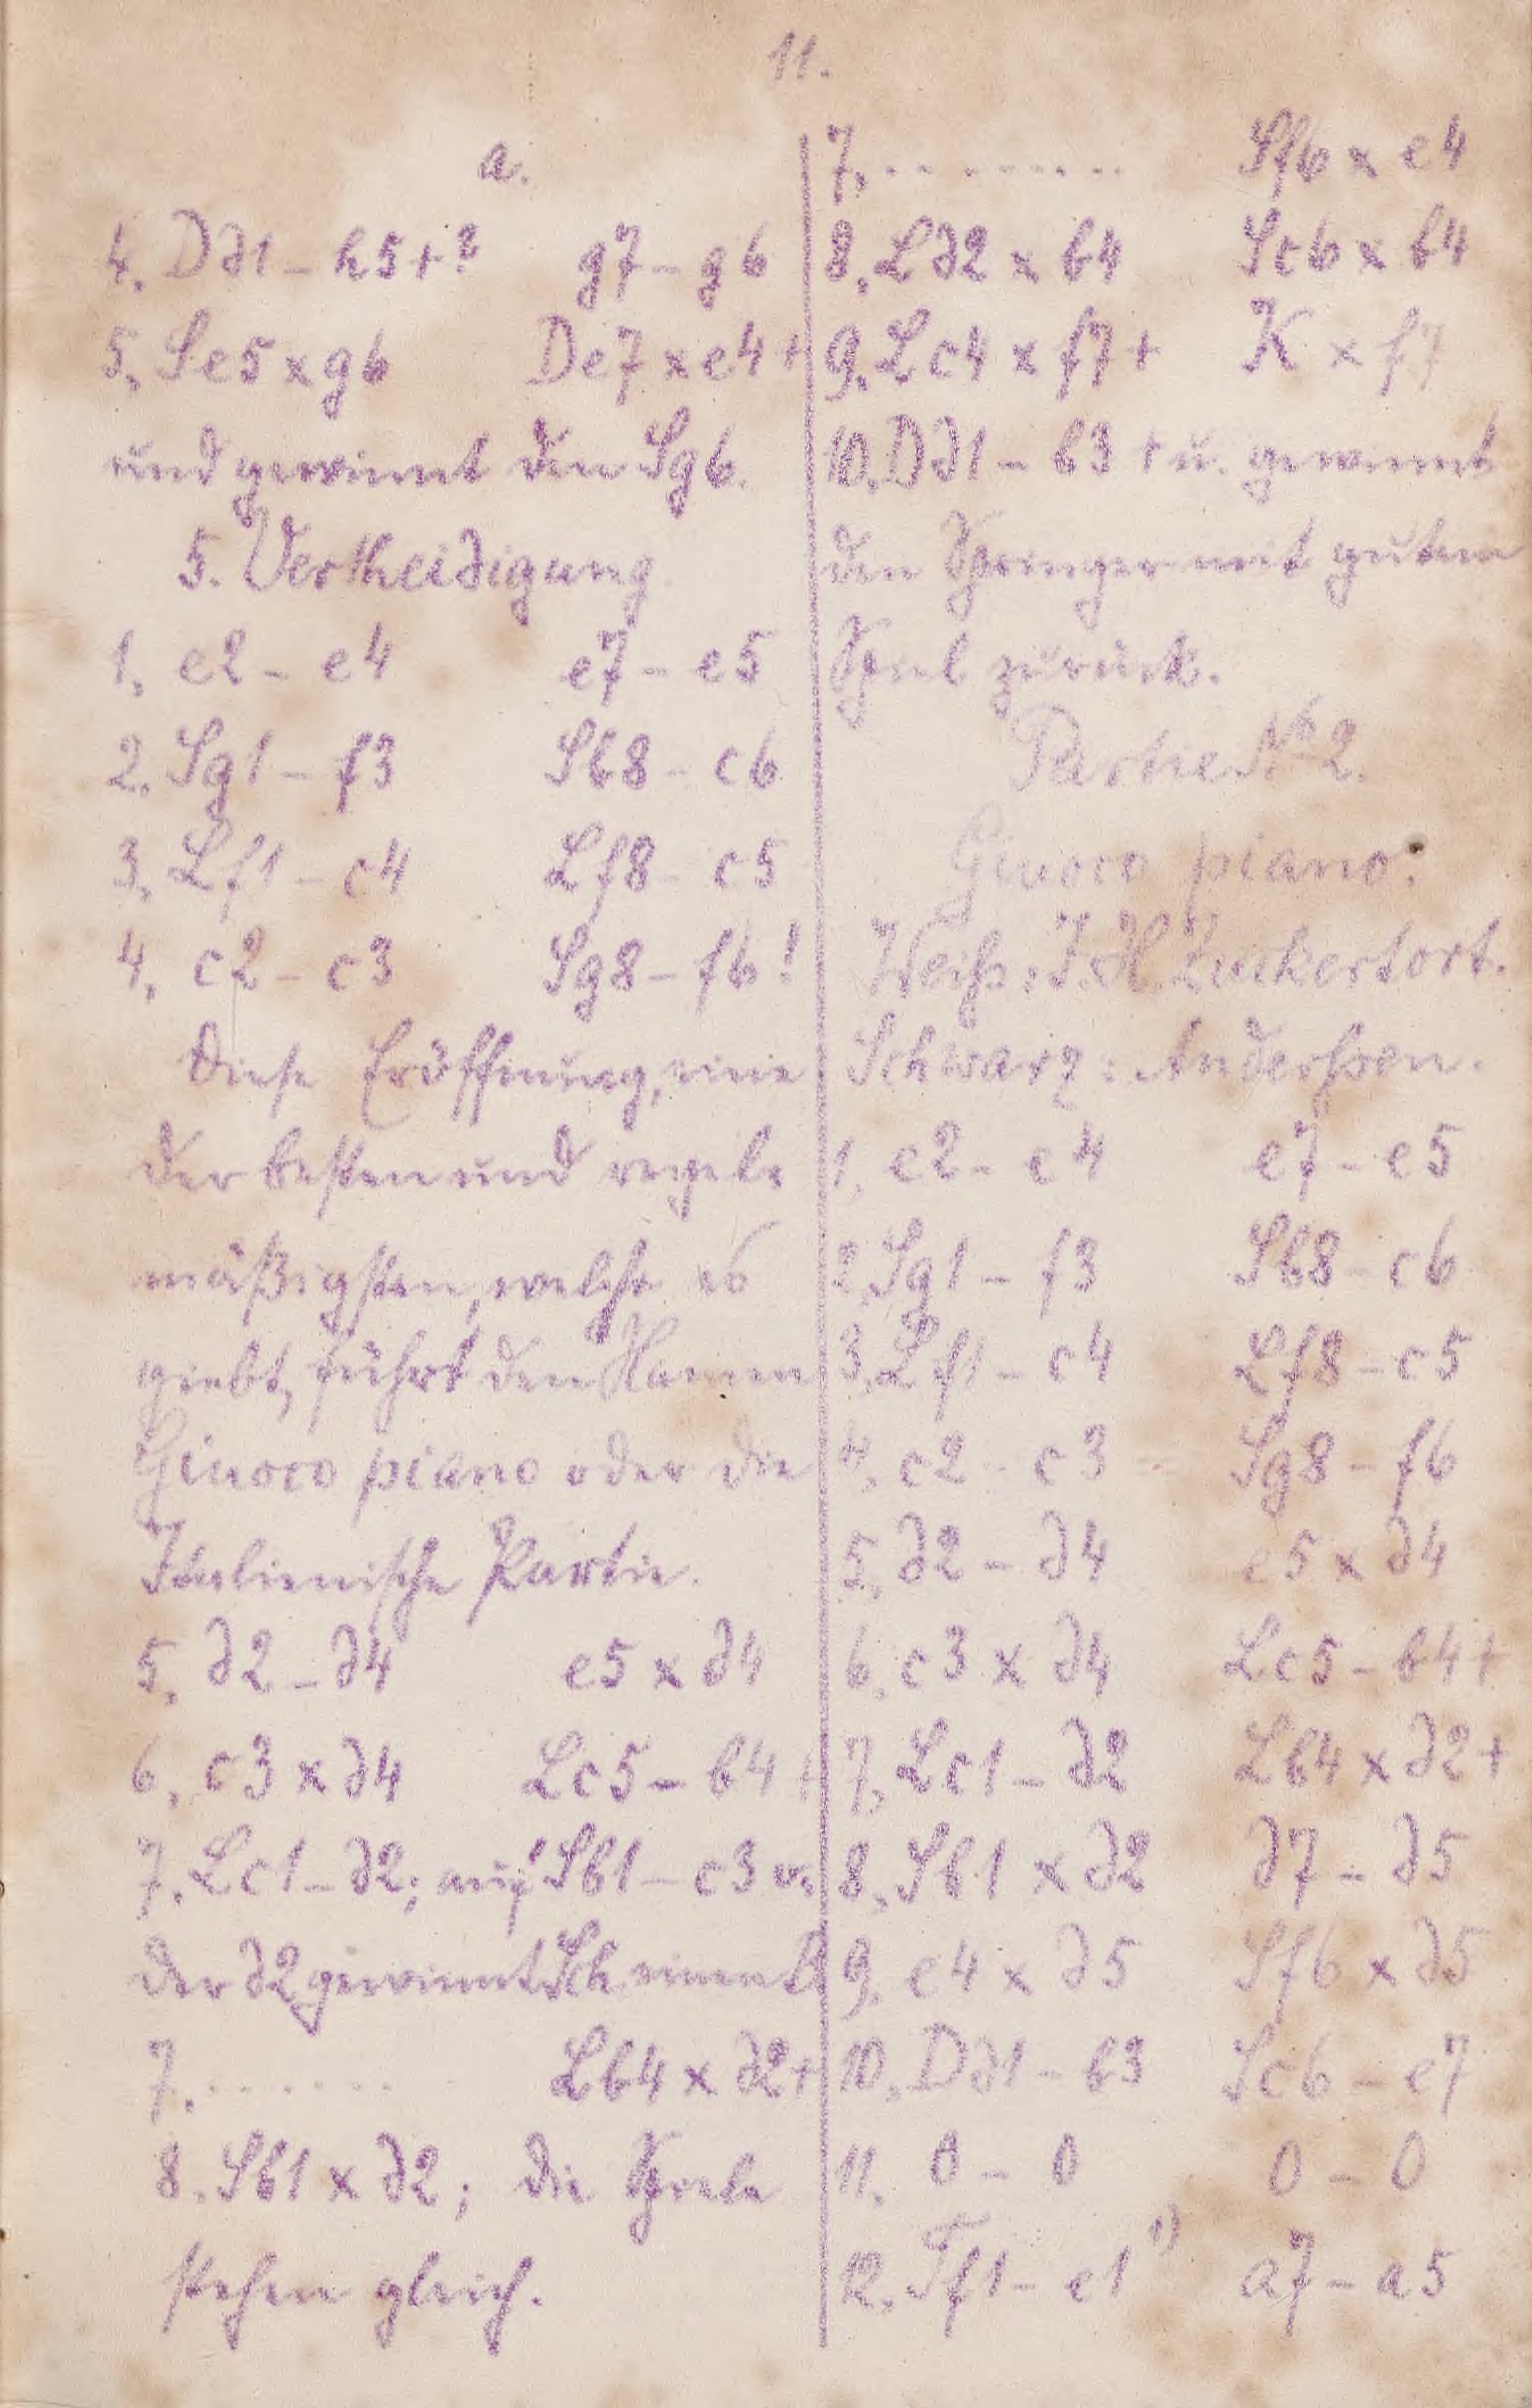 11.
a.
4. Dd1 – h5+? g7 – g6
5. Se5 x g6 De7 x e4+
und gewinnt den Sg6.
5. Vertheidigung
1. e2 – e4 e7 – e5
2. Sg1 – f3 Sb8 – c6
3. Lf1 – c4 Lf8 – c5
4. c2 – c3 Sg8 – f6!
Diese Eröffnung, eine
der besten und regel-
mäßigsten, welche es
giebt, führt den Namen
Giuoco piano oder die
Italienische Partie.
5. d2 – d4 e5 x d4
6. c3 x d4 Lc5 – b4+
7. Lc1 – d2; auf Sb1 – c3 o.
der d2 gewinnt Sch. einen B
7. ....... Lb4 x d2+
8. Sb1 x d2; die Spiele
stehen gleich.
7. ......... Sf6 x e4
8. Ld2 x b4 Sc6 x b4
9. Lc4 x f7+ K x f7
10. Dd1 – b3+ u. gewinnt
den Springer mit gutem
Spiel zurück.
Partie No 2.
Giuoco piano.
Weiß: J. H. Zuckertort.
Schwarz: Anderssen.
1. e2 – e4 e7 – e5
2. Sg1 – f3 Sb8 – c6
3. Lf1 – c4 Lf8 – c5
4. c2 – c3 Sg8 – f6
5. d2 – d4 e5 x d4
6. c3 x d4 Lc5 – b4+
7. Lc1 – d2 Lb4 x d2+
8. Sb1 x d2 d7 – d5
9. e4 x d5 Sf6 x d5
10. Dd1 – b3 Sc6 – e7
11. 0 – 0 0 – 0
12. Tf1 – e1 1) a7 – a5